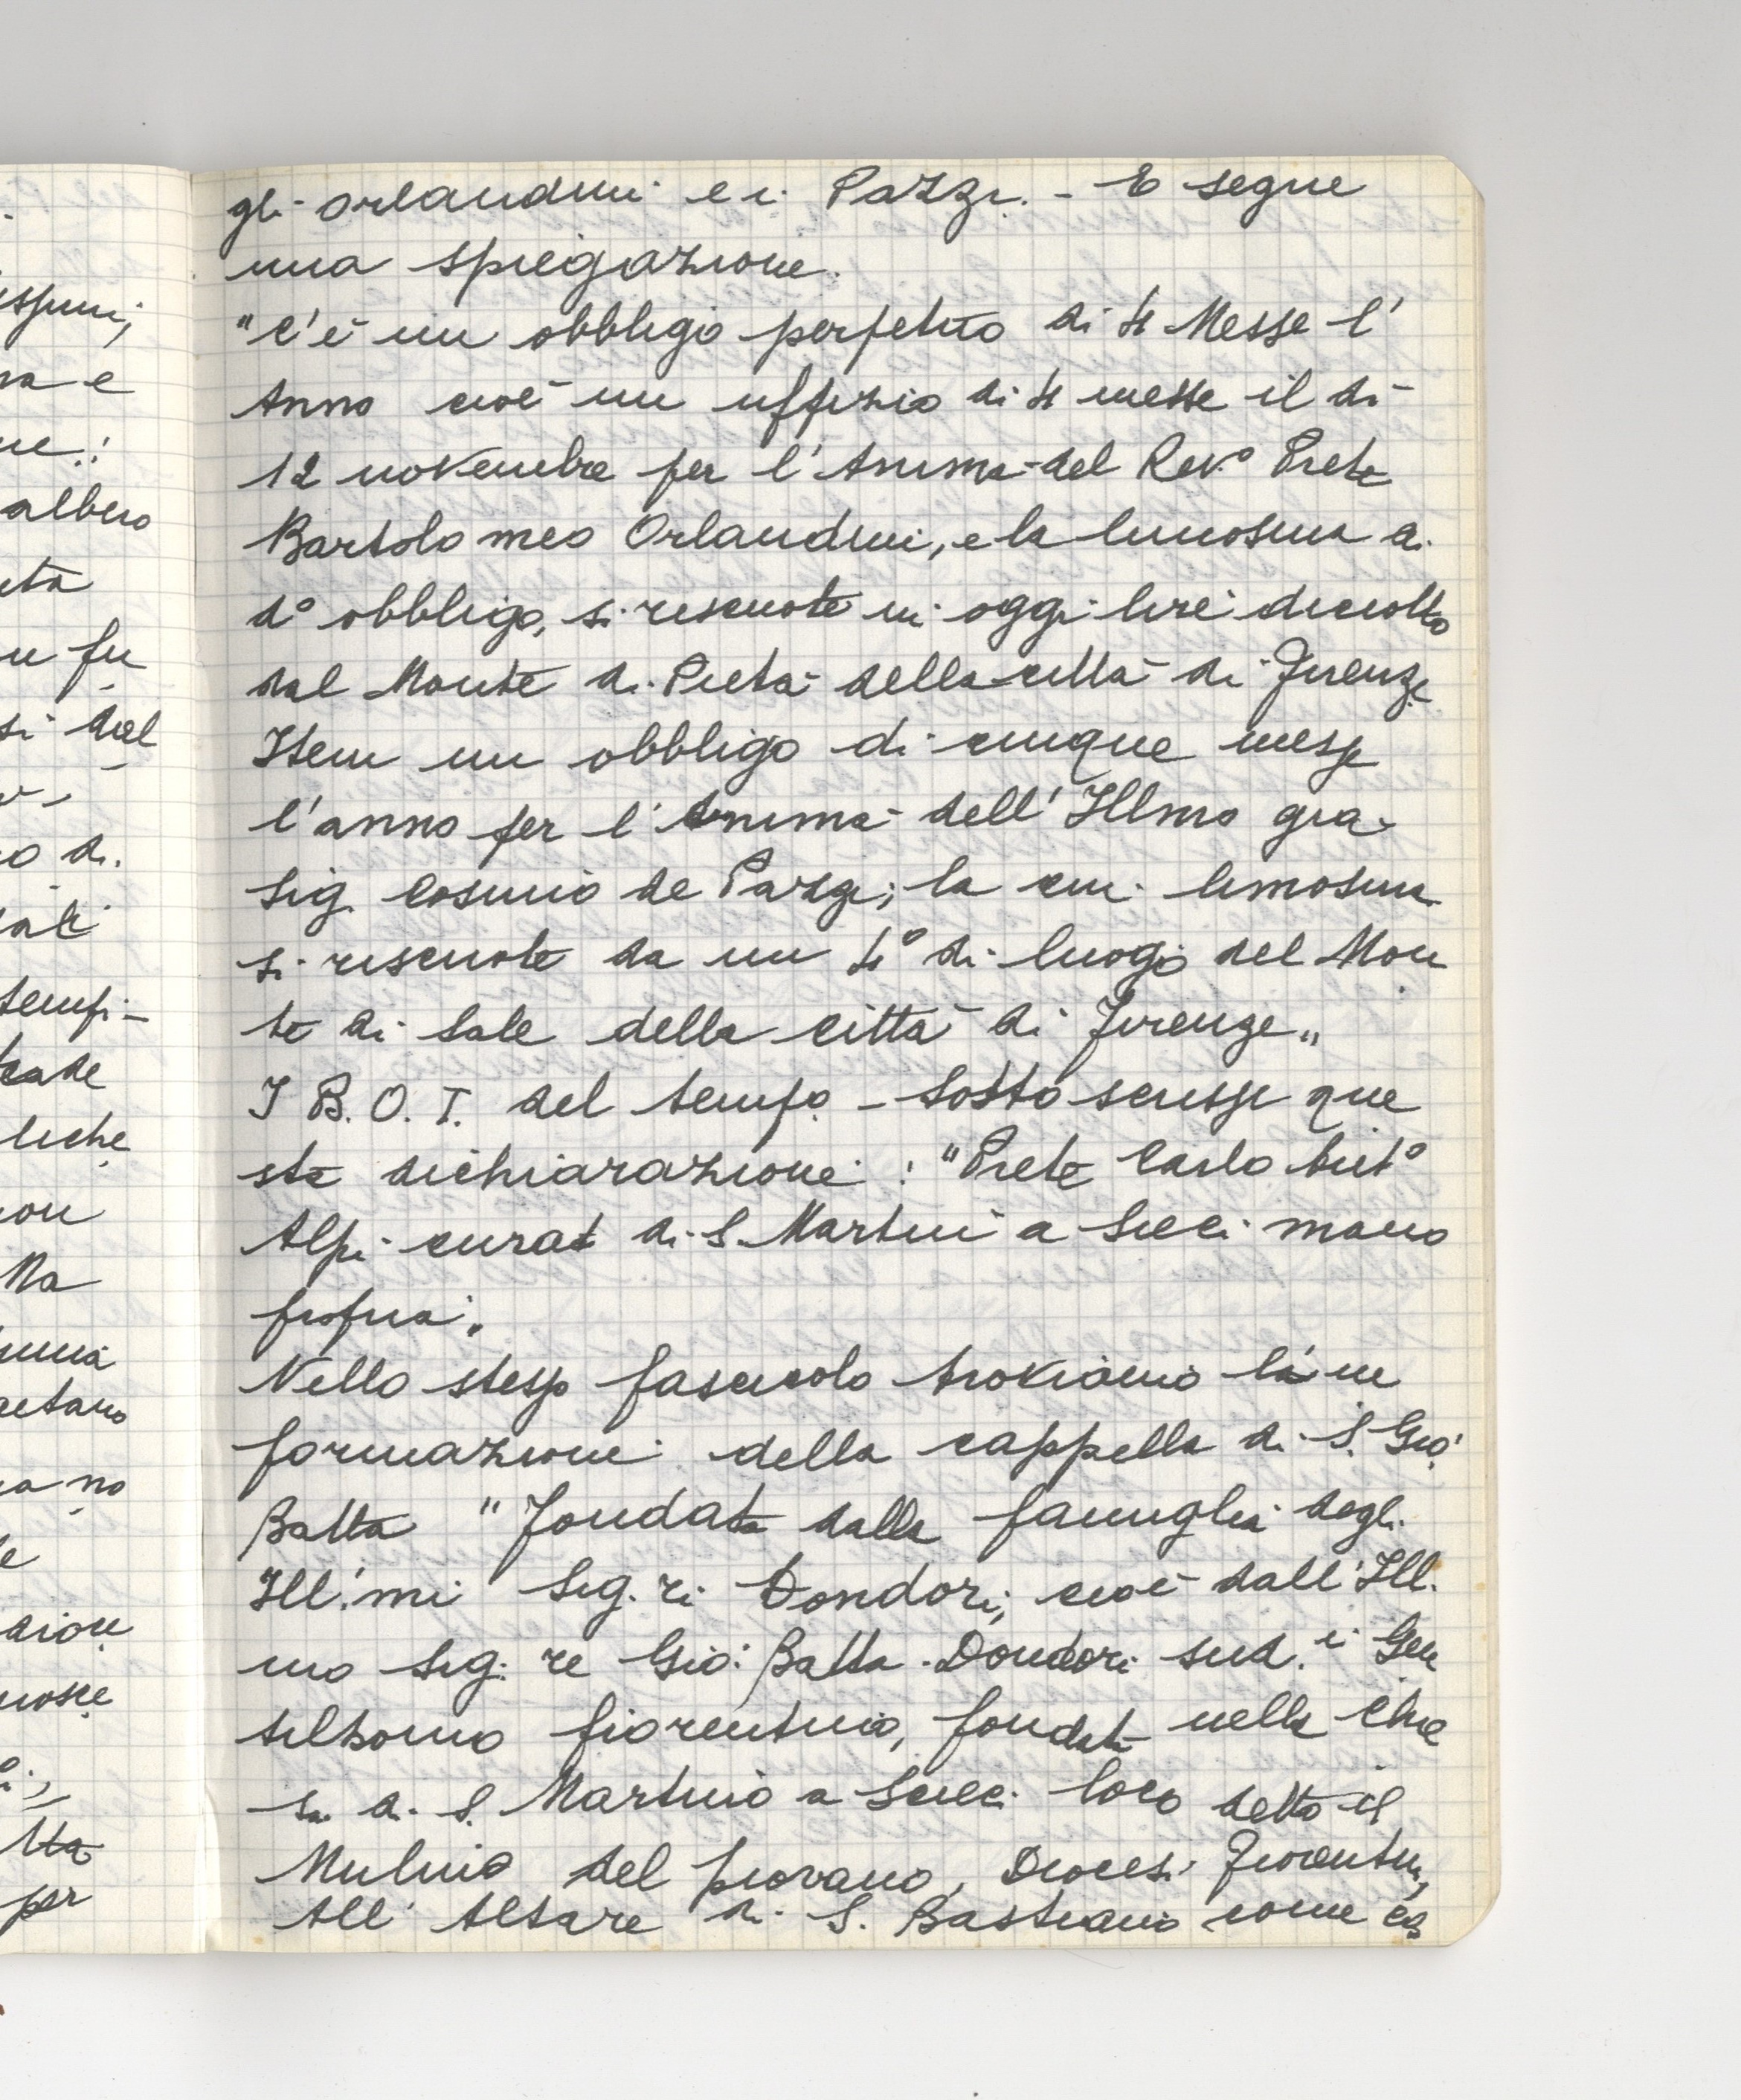 gli Orlandini e i Pazzi. - E segue
una spiegazione.
"C'è un obbligo perpetuo di 4 Messe l'
Anno cioè un uffizio di 4 messe il dì
12 novembre per l'Anima del Rev.º Prete
Bartolomeo Orlandini, e la limosina di
dº obbligo, si riscuote in oggi lire diciotto
dal Monte di Pietà della città di Firenze
Item un obbligo di cinque messe
l'anno per l'Anima dell'Illmo già
Sig. Cosimo de Pazzi; la cui limosina
si riscuote da un 4º di luogo del Mon
te di Sale della città di Firenze"
I B.O.T. del tempo - Sottoscrisse que
sta dichiarazione: "Prete Carlo Ant.º
Alpi curat di S. Martino a Sieci mano
propria".
Nello stesso fascicolo troviamo la in
formazione della cappella di S. Gio:
Batta "Fondata dalla famiglia degli
Ill.mi Sig.ri Dondori, cioè dall'Ill.
mo Sig.re Gio: Batta Dondori sud. Gen
tilhomo fiorentino, fondata nella Chie
sa di S. Martino a Sieci loco detto il
Mulino del piovano, Diocesi Fiorentin,
All'Altare di S. Bastiano come
ispuni;
na e
ne:
albero
età
fu
si dal
o di
tempi-
tade
liche
non
Ma
etano
a no
e
per